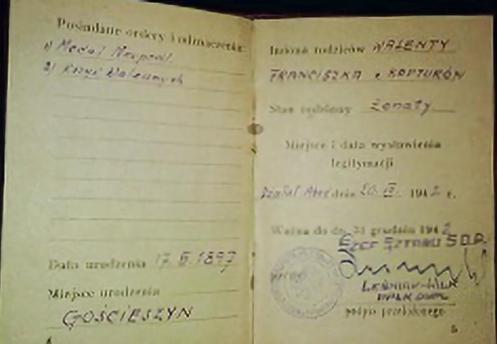 Posiadane ordery i odznaczenia:
1) Medal Niepodl.
2) Krzyż Walecznych
Data urodzenia 17.
Miejsce urodzenia
GOŚCIESZYN
Imiona rodziców WALENTY
FRANCISZKA z KAPTURÓW
Stan rodzinny żonaty
Miejsce i data wystawienia
legitymacji
dnia 20. 1942 r.
Ważna do dn. 31 grudnia 1942
SZEF SZTABU S.O.P.
podpis przełożonego
5